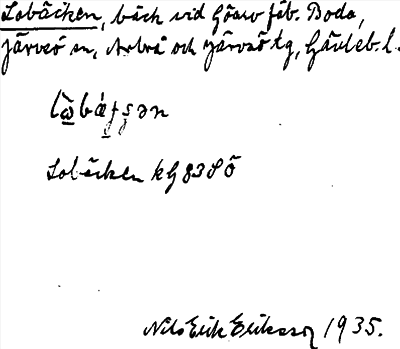 Lobäcken, bäck vid Göaw fäb. Boda,
Järvsö sn, Arbrå och Järvsö tg, Gävleb. l.
Lobäcken kG 83 S Ö
Nils Erik Eriksson 1935.